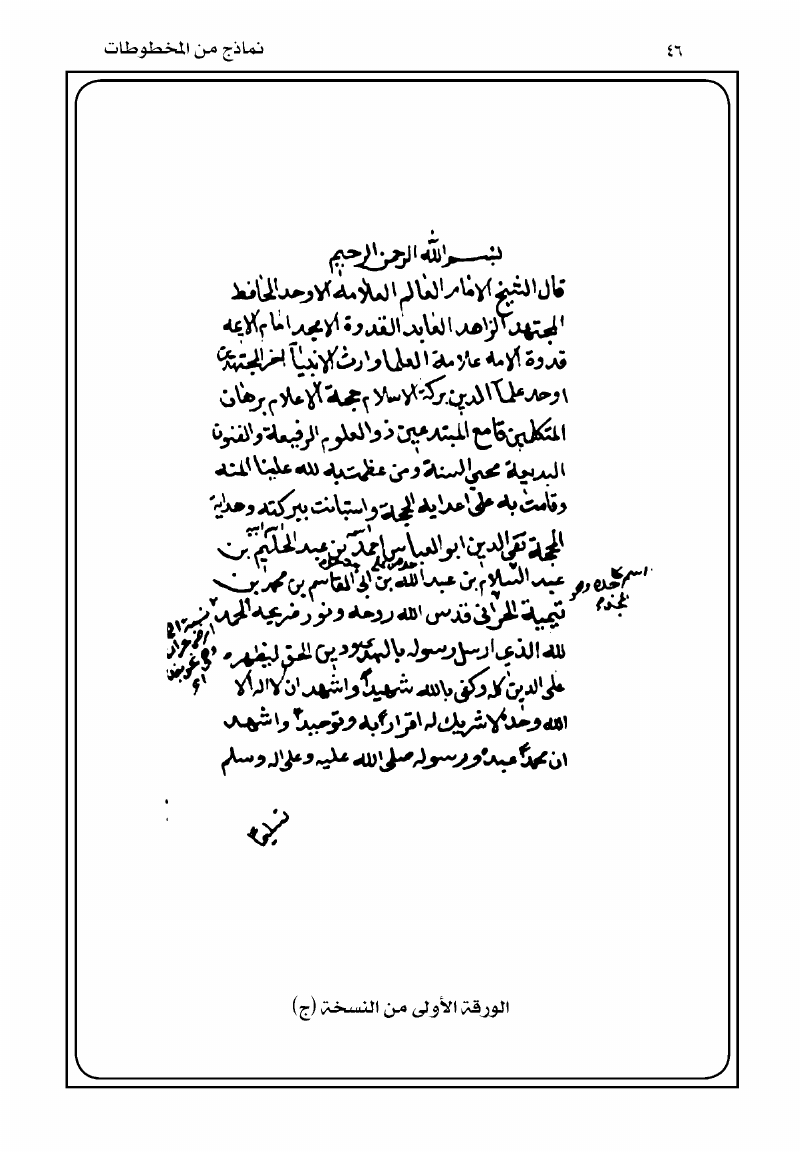 ٤٦
نماذج من المخطوطات
بسم الله الرحمن الرحيم
قال الشيخ الامام العالم العلامة الاوحد الحافظ
المجتهد الزاهد العابد القدوة الامجد امام الايمه
قدوة الامه علامة العلما وارث الانبيا اخر المجتهدين
اوحد علما الدين بركة الاسلام حجة الاعلام برهان
المتكلمين قامع المبتدعين ذو العلوم الرفيعة والفنون
البديعة محيي السنة ومن عظمت به لله علينا المنه
وقامت به على اعدايه الحجة واستبانت ببركته وهديه
المحجة تقي الدين ابو العباس احمد بن عبد الحليم بن
عبد السلام بن عبد الله بن ابي القاسم بن محمد بن
تيمية الحراني قدس الله روحه ونور ضريحه الحمد
لله الذي ارسل رسوله بالهدى ودين الحق ليظهره
على الدين كله وكفى بالله شهيداً واشهد ان لا اله الا
الله وحده لا شريك له اقراراً به وتوحيداً واشهد
ان محمداً عبده ورسوله صلى الله عليه وعلى اله وسلم
تسليما
اسم جده
نسبة
الورقة الأولى من النسخة (ج)